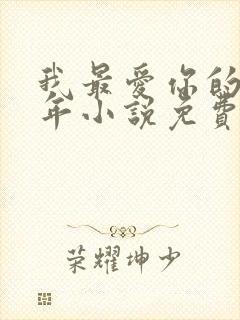 我最爱你的
年小説免費
荣耀坤少